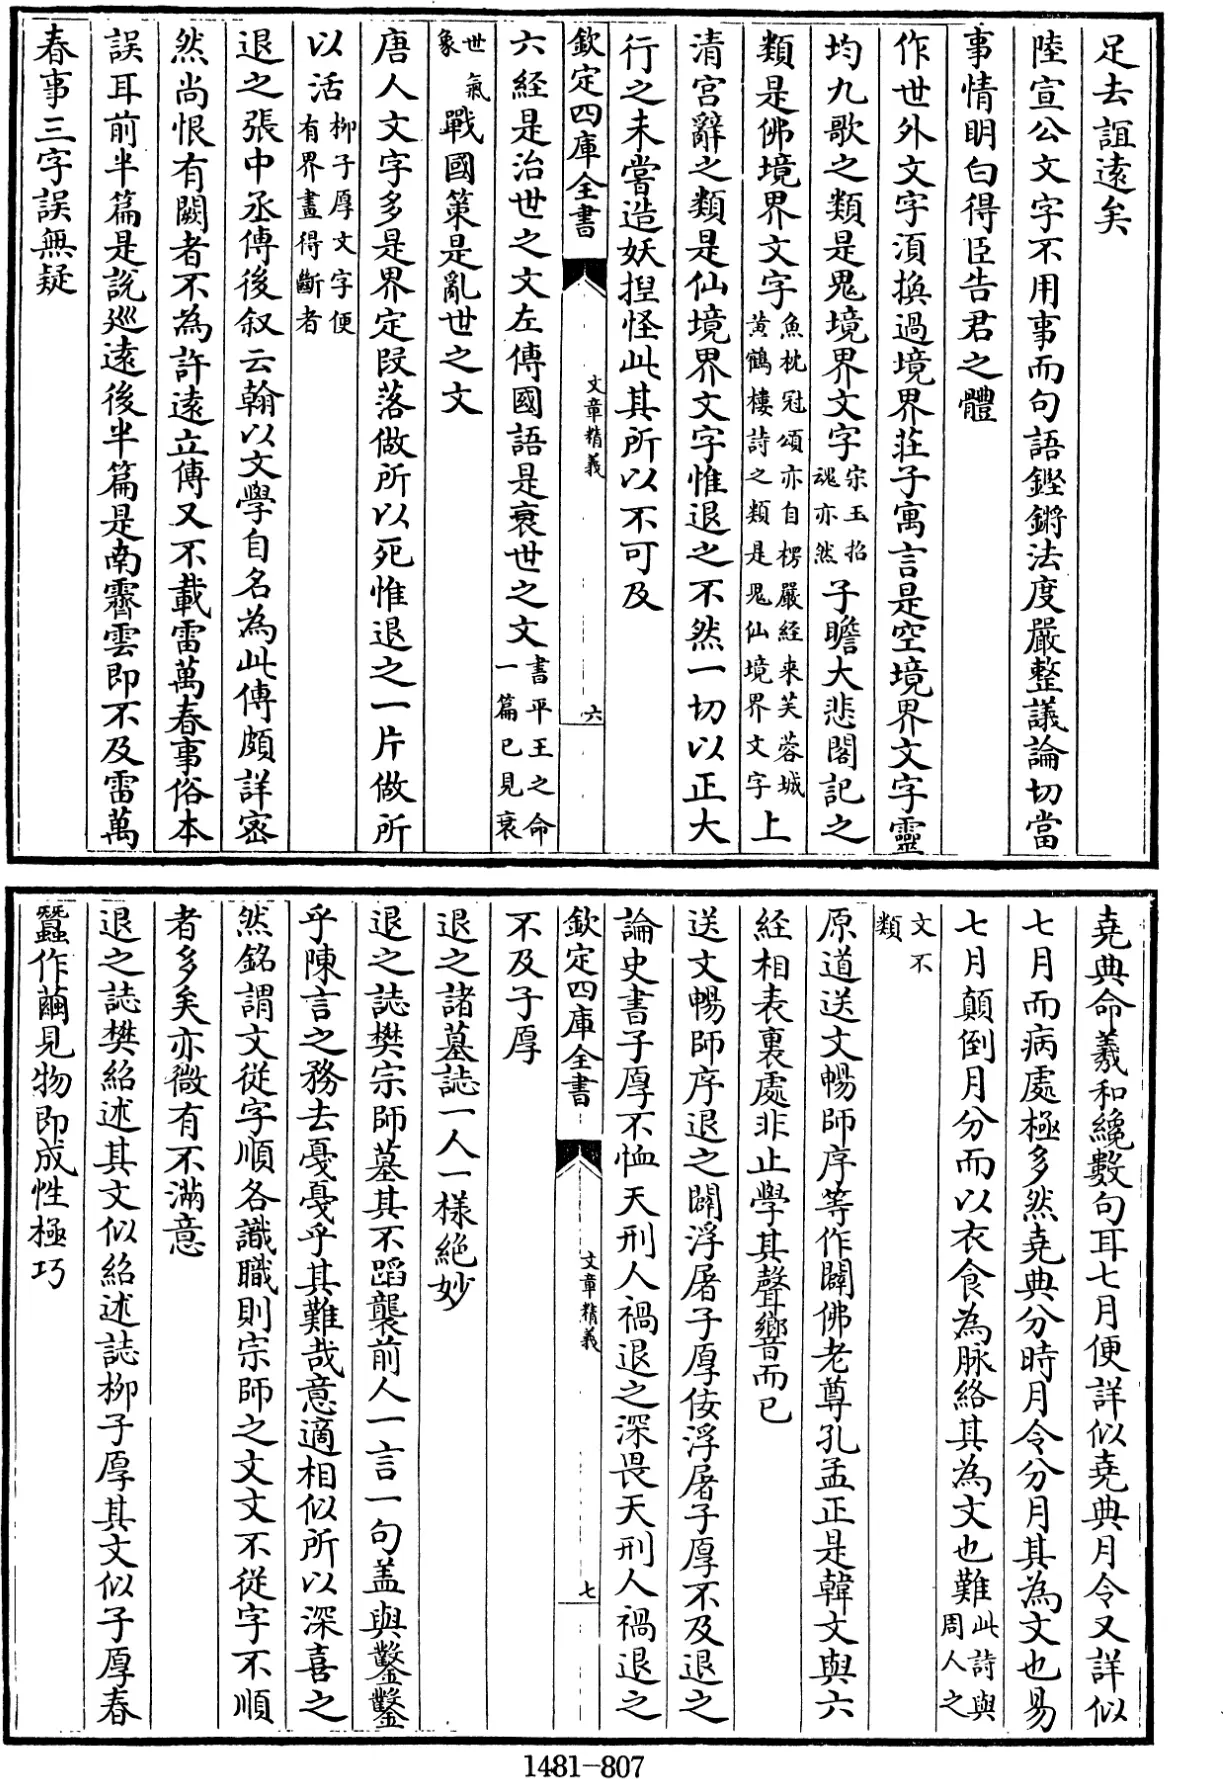 足去誼遠矣
陸宣公文字不用事而句語鏗鏘法度嚴整議論切當
事情明白得臣告君之體
作世外文字湏換過境界莊子寓言是空境界文字靈
均九歌之類是鬼境界文字宋玉招魂亦然子瞻大悲閣記之
類是佛境界文字魚枕冠頌亦自楞嚴經来芙蓉城黄鶴樓詩之類是鬼仙境界文字上
清宫辭之類是仙境界文字惟退之不然一切以正大
行之未嘗造妖捏怪此其所以不可及
欽定四庫全書
文章精義
六
六經是治世之文左傳國語是衰世之文書平王之命一篇已見衰
世氣象戰國策是亂世之文
唐人文字多是界定段落做所以死惟退之一片做所
以活柳子厚文字便有界畫得斷者
退之張中丞傳後叙云翰以文學自名為此傳頗詳密
然尚恨有闕者不為許遠立傳又不載雷萬春事俗本
誤耳前半篇是説廵遠後半篇是南霽雲即不及雷萬
春事三字誤無疑
堯典命羲和纔數句耳七月便詳似堯典月令又詳似
七月而病處極多然堯典分時月令分月其為文也易
七月顛倒月分而以衣食為脉絡其為文也難此詩與周人之
文不類
原道送文暢師序等作闢佛老尊孔孟正是韓文與六
經相表裏處非止學其聲響而已
送文暢師序退之闢浮屠子厚佞浮屠子厚不及退之
論史書子厚不恤天刑人禍退之深畏天刑人禍退之
欽定四庫全書
文章精義
七
不及子厚
退之諸墓誌一人一樣絶妙
退之誌樊宗師墓其不蹈襲前人一言一句盖與鑿鑿
乎陳言之務去戞戞乎其難哉意適相似所以深喜之
然銘謂文從字順各識職則宗師之文文不從字不順
者多矣亦微有不滿意
退之誌樊紹述其文似紹述誌柳子厚其文似子厚春
蠶作繭見物即成性極巧
1481-807